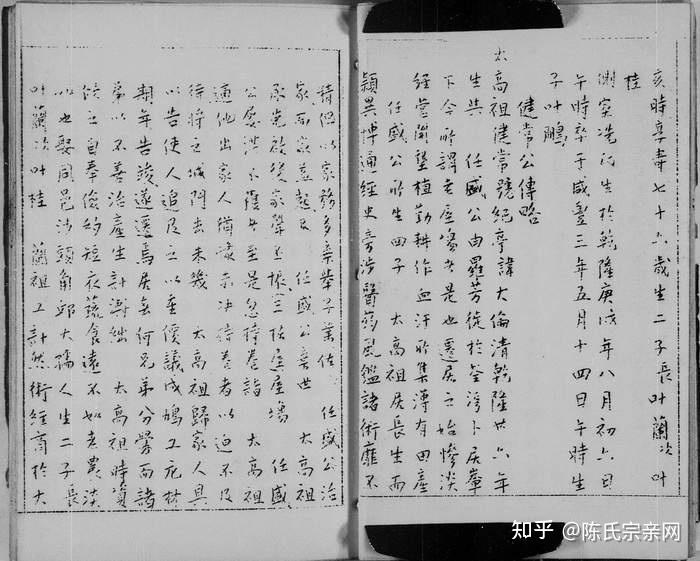 亥時享壽七十六歲生二子長叶蘭次叶
桂
側室冼氏生於乾隆庚戌年八月初六日
午時卒于咸豐三年五月十四日午時生
子叶鵬
健常公傳略
太高祖健常號純亭諱大倫清乾隆廿六年
生共任盛公由羅芳徙於荃灣卜居
下今所謂老屋場者是也遷居之始慘淡
經營開墾植勤耕作血汗所集薄有田產
任盛公所生四子太高祖居長生而
穎異博通經史旁涉醫葯風鑑諸術靡不
精但以家務多棄舉子業佐任盛公治
家而家益起及任盛公棄世太高祖
承先啟後家聲丕振三棟屋屋場任盛
公屢涉下獲者至是忽持卷詣太高祖
適他出家人猶豫未決待卷者以迫不及
待將之城門去未幾太高祖歸家人具
以告使人追及之以重價議成鳩工庀材
期年告竣遂遷焉居無何兄弟分爨而諸
弟以不善治產生計漸絀太高祖時資
倚之自奉儉約短衣蔬食遠不如老農淡
如也娶同邑沙頭角邱大孺人生二子長
叶蘭次叶桂蘭祖工計然術經商於大
知乎 @陈氏宗亲网